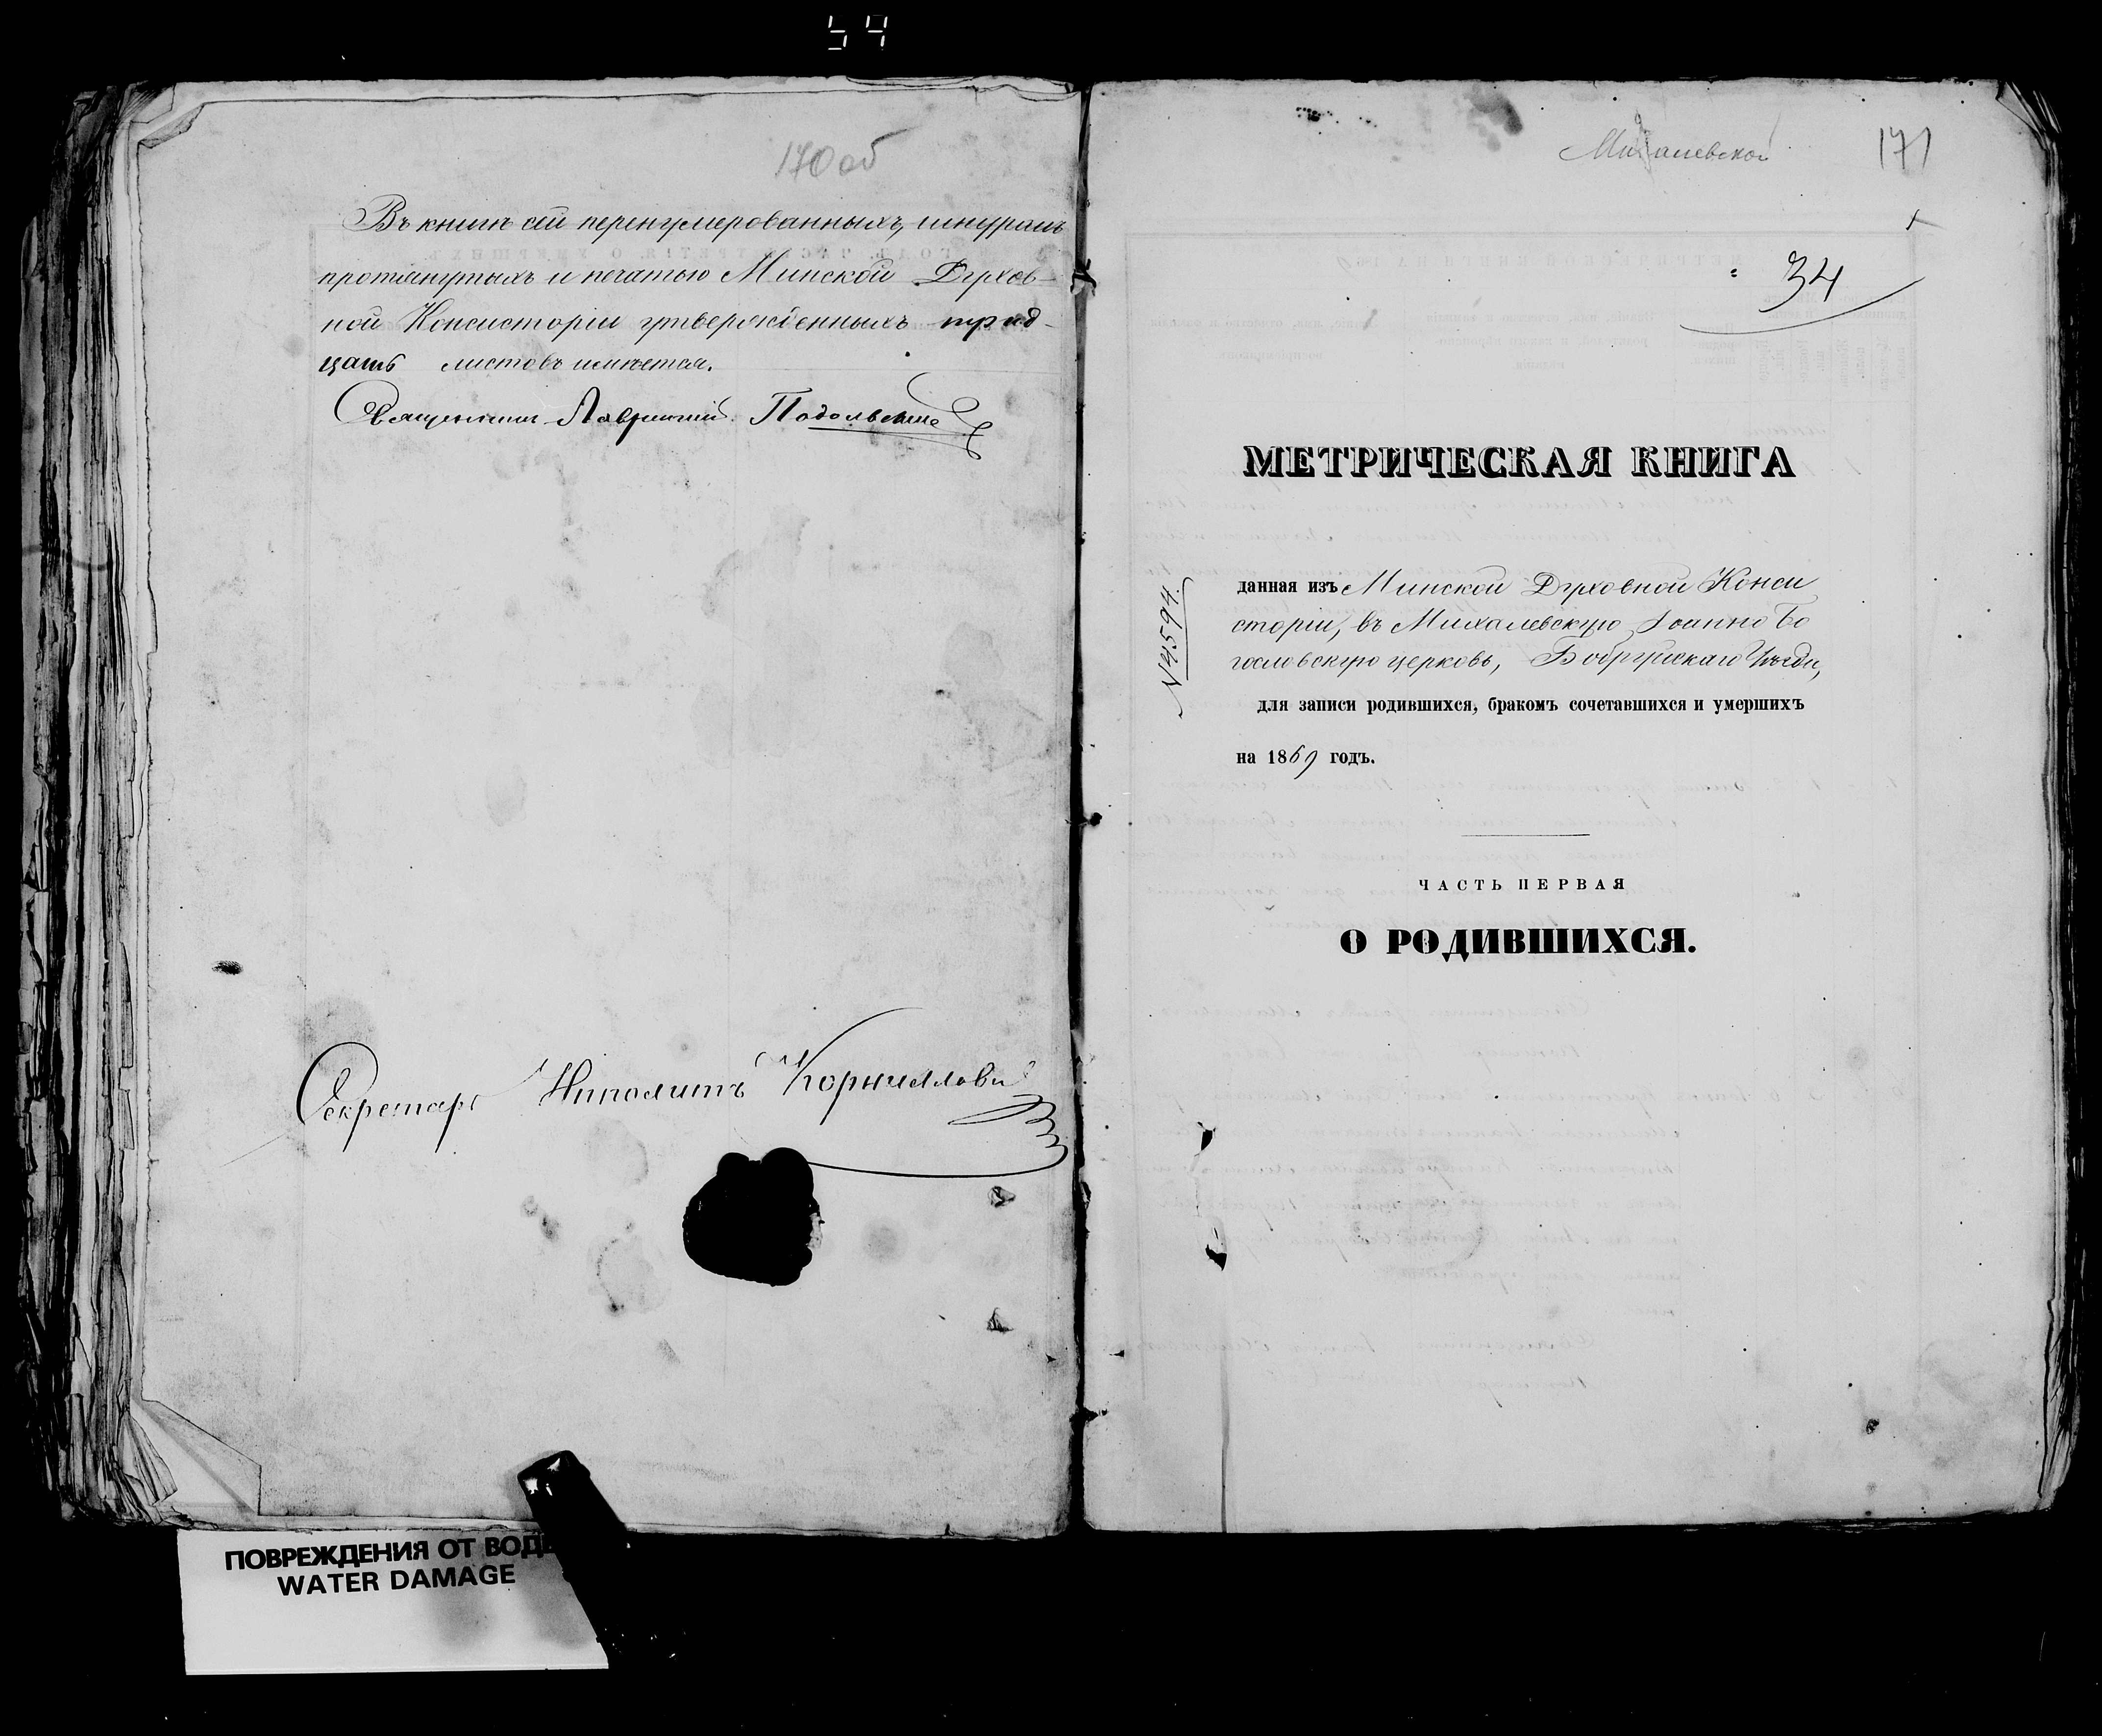 54
170 об
Въ книгѣ сей перенумерованныхъ, шнуромъ
протянутыхъ и печатью Минской Духов-
ной Консисторіи утвержденныхъ трид-
цать листовъ имѣется.
Священникъ Подольскій
Секретарь Иполитъ
ПОВРЕЖДЕНИЯ ОТ ВОДЫ
WATER DAMAGE
Михалевской 171
34
МЕТРИЧЕСКАЯ КНИГА
№ 4594.
данная изъ Минской Духовной Конси
сторіи, въ Михалевскую Іоанно Бо
гословскую церковь, Бобруйскаго Уѣзда,
для записи родившихся, бракомъ сочетавшихся и умершихъ
на 1869 годъ.
ЧАСТЬ ПЕРВАЯ
О РОДИВШИХСЯ.